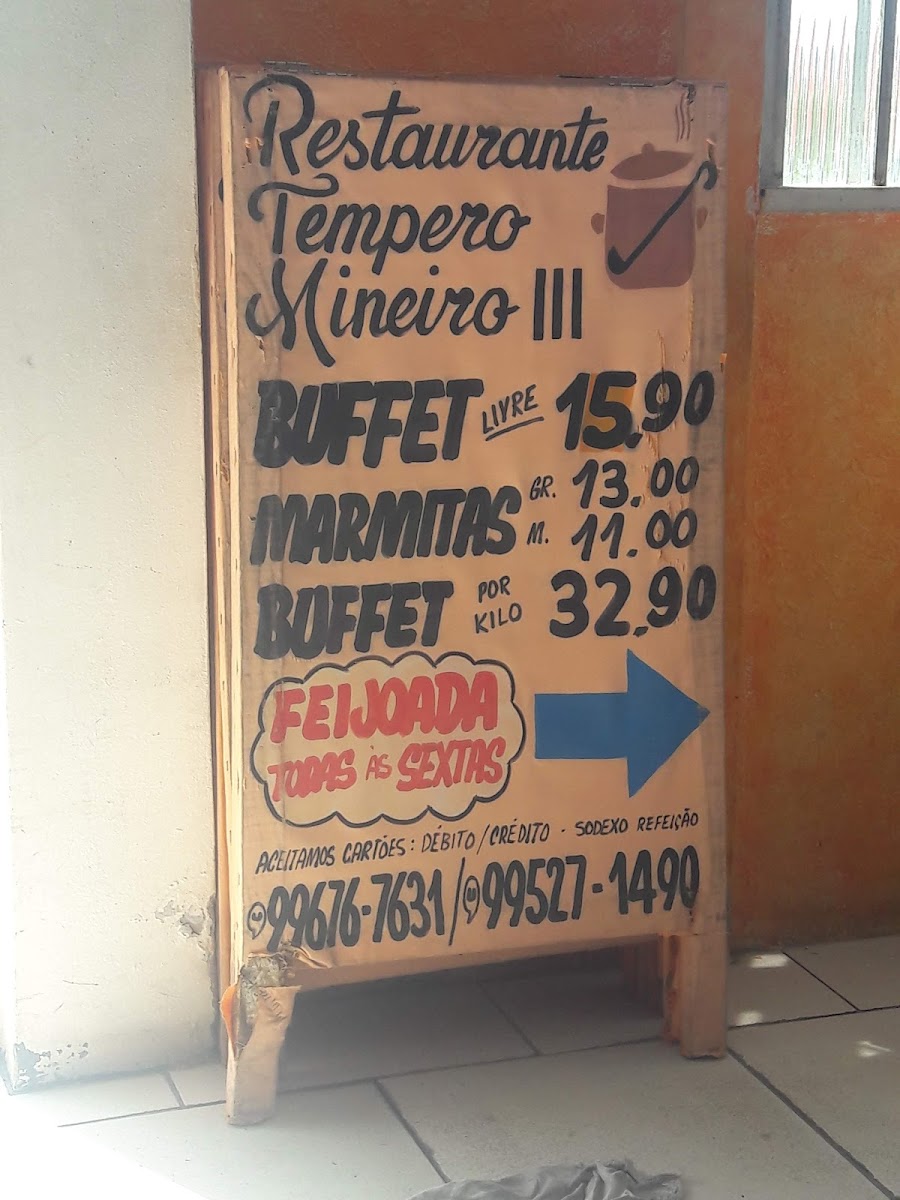 Restaurante
Tempero
Mineiro III
BUFFET LIVRE 15,90
MARMITAS GR. 13.00
M. 11.00
BUFFET POR KILO 32,90
FEIJOADA
TODAS ÀS SEXTAS
ACEITAMOS CARTÕES: DÉBITO/CRÉDITO - SODEXO REFEIÇÃO
99676-7631/99527-1490